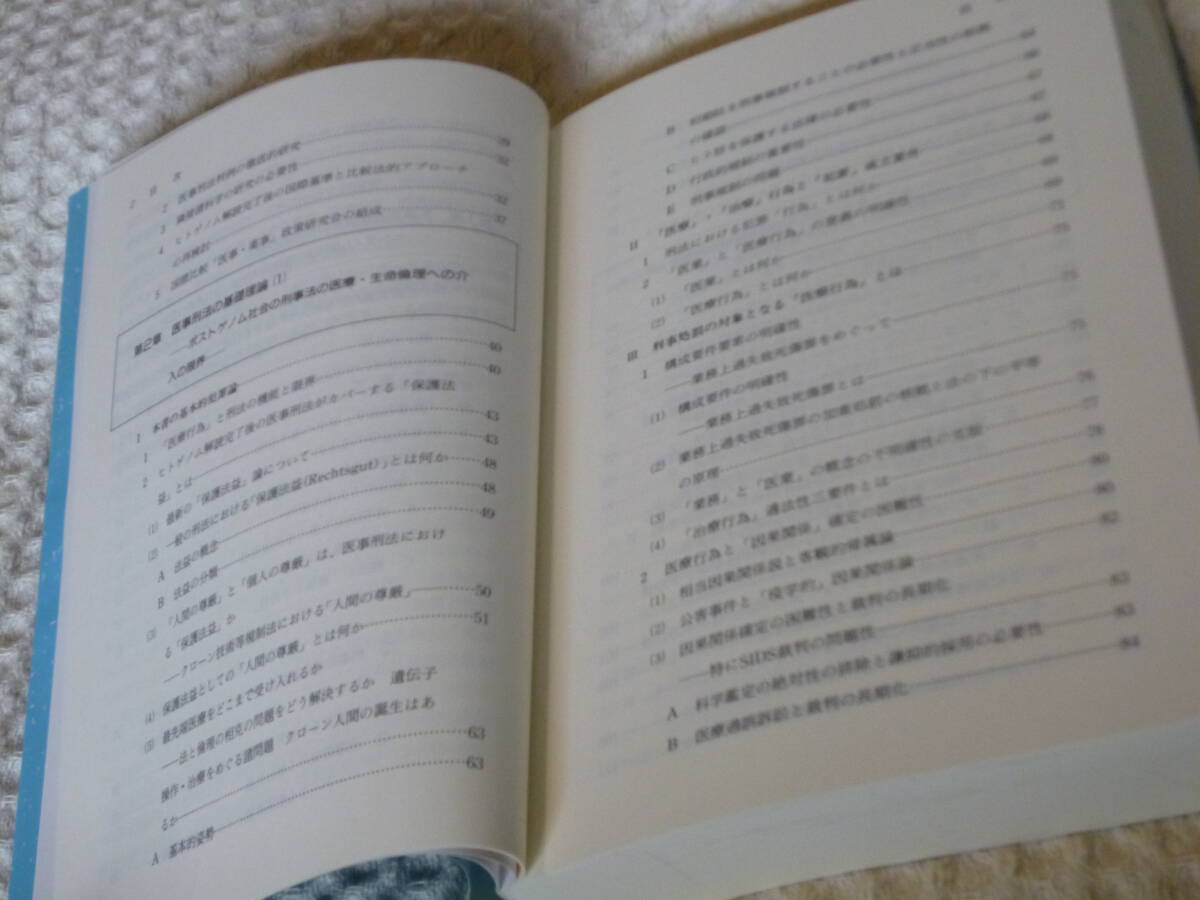 2 目 次
2 医事刑法判例の徹底的研究 29
3 倫理選科学の研究の必要性 32
4 ヒトゲノム解読完了後の国際基準と比較法的アプローチ
の再検討 32
5 国際比較「医事・薬事」政策研究会の結成 37
第2章 医事刑法の基礎理論(1)
――ポストゲノム社会の刑事法の医療・生命倫理への介
入の限界―― 40
I 本書の基本的犯罪論 40
1 「医療行為」と刑法の機能と限界
2 ヒトゲノム解読完了後の医事刑法がカバーする「保護法
益」とは 43
(1) 最新の「保護法益」論について 43
(2) 一般の刑法における「保護法益(Rechtsgut)」とは何か 48
A 法益の概念 48
B 法益の分類 49
(3) 「人間の尊厳」と「個人の尊厳」は、医事刑法におけ
る「保護法益」か
――クローン技術等規制法における「人間の尊厳」―― 50
(4) 保護法益としての「人間の尊厳」とは何か 51
(5) 最先端医療をどこまで受け入れるか
――法と倫理の相克の問題をどう解決するか 遺伝子
操作・治療をめぐる諸問題 クローン人間の誕生はあ
るか 63
A 基本的姿勢 63
の確認
C ヒト胚を保護する法律の必要性
D 行政的規制の重要性
E 刑事規制の問題
II 「医療」・「治療」行為と「犯罪」成立要件
1 刑法における犯罪「行為」とは何か
2 「医業」と「医療行為」の意義の明確性
(1) 「医業」とは何か
(2) 「医療行為」とは何か
III 刑事処罰の対象となる「医療行為」とは
1 構成要件要素の明確性
――業務上過失致死傷罪をめぐって
(1) 構成要件の明確性
――業務上過失致死傷罪とは
(2) 業務上過失致死傷罪の加重処罰の根拠と法の下の平等
の原理
(3) 「業務」と「医業」の概念の不明確性の克服
(4) 「治療行為」適法性三要件とは
2 医療行為と「因果関係」確定の困難性
(1) 相当因果関係説と客観的帰属論
(2) 公害事件と「疫学的」因果関係論
(3) 因果関係確定の困難性と裁判の長期化
――特にSIDS裁判の問題性
A 科学鑑定の絶対性の排除と謙抑的採用の必要性
B 医療過誤訴訟と裁判の長期化